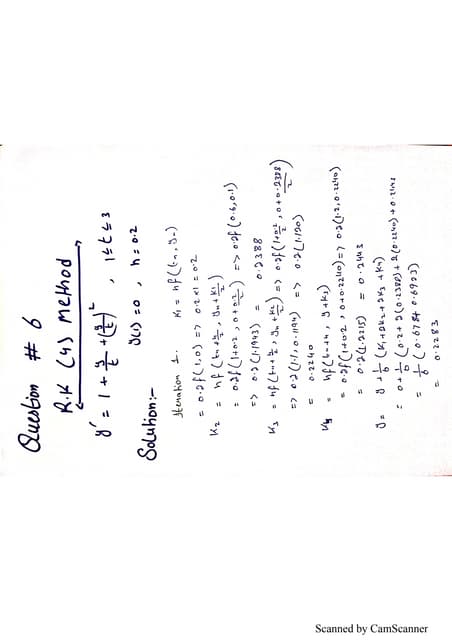 Question # 6
R.K (4) Method
y' = 1 + y/t + (y/t)², 1 ≤ t ≤ 3
y(1) = 0, h = 0.2
Solution:-
Iteration 1. K₁ = hf(tn, yn)
= 0.2f(1,0) => 0.2×1 = 0.2
K₂ = hf(tn+h/2, yn+K1/2)
= 0.2f(1+0.2/2, 0+0.2/2) => 0.2f(0.6,0.1)
=> 0.2(1.1943) = 0.2388
K₃ = hf(tn+h/2, yn+K2/2) => 0.2f(1+0.2/2, 0+0.2388/2)
=> 0.2(1.1, 0.1194) => 0.2(1.120)
= 0.2240
K4 = hf(tn+h, y+K3)
= 0.2f(1+0.2, 0+0.2240) => 0.2(1.2, 0.2240)
= 0.2(1.2215) = 0.2443
y = y + 1/6 (K1+2K2+2K3+K4)
= 0 + 1/6 (0.2+2(0.2388)+2(0.2240)+0.2443
= 1/6 (0.6784 0.6923)
= 0.2283
Scanned by CamScanner